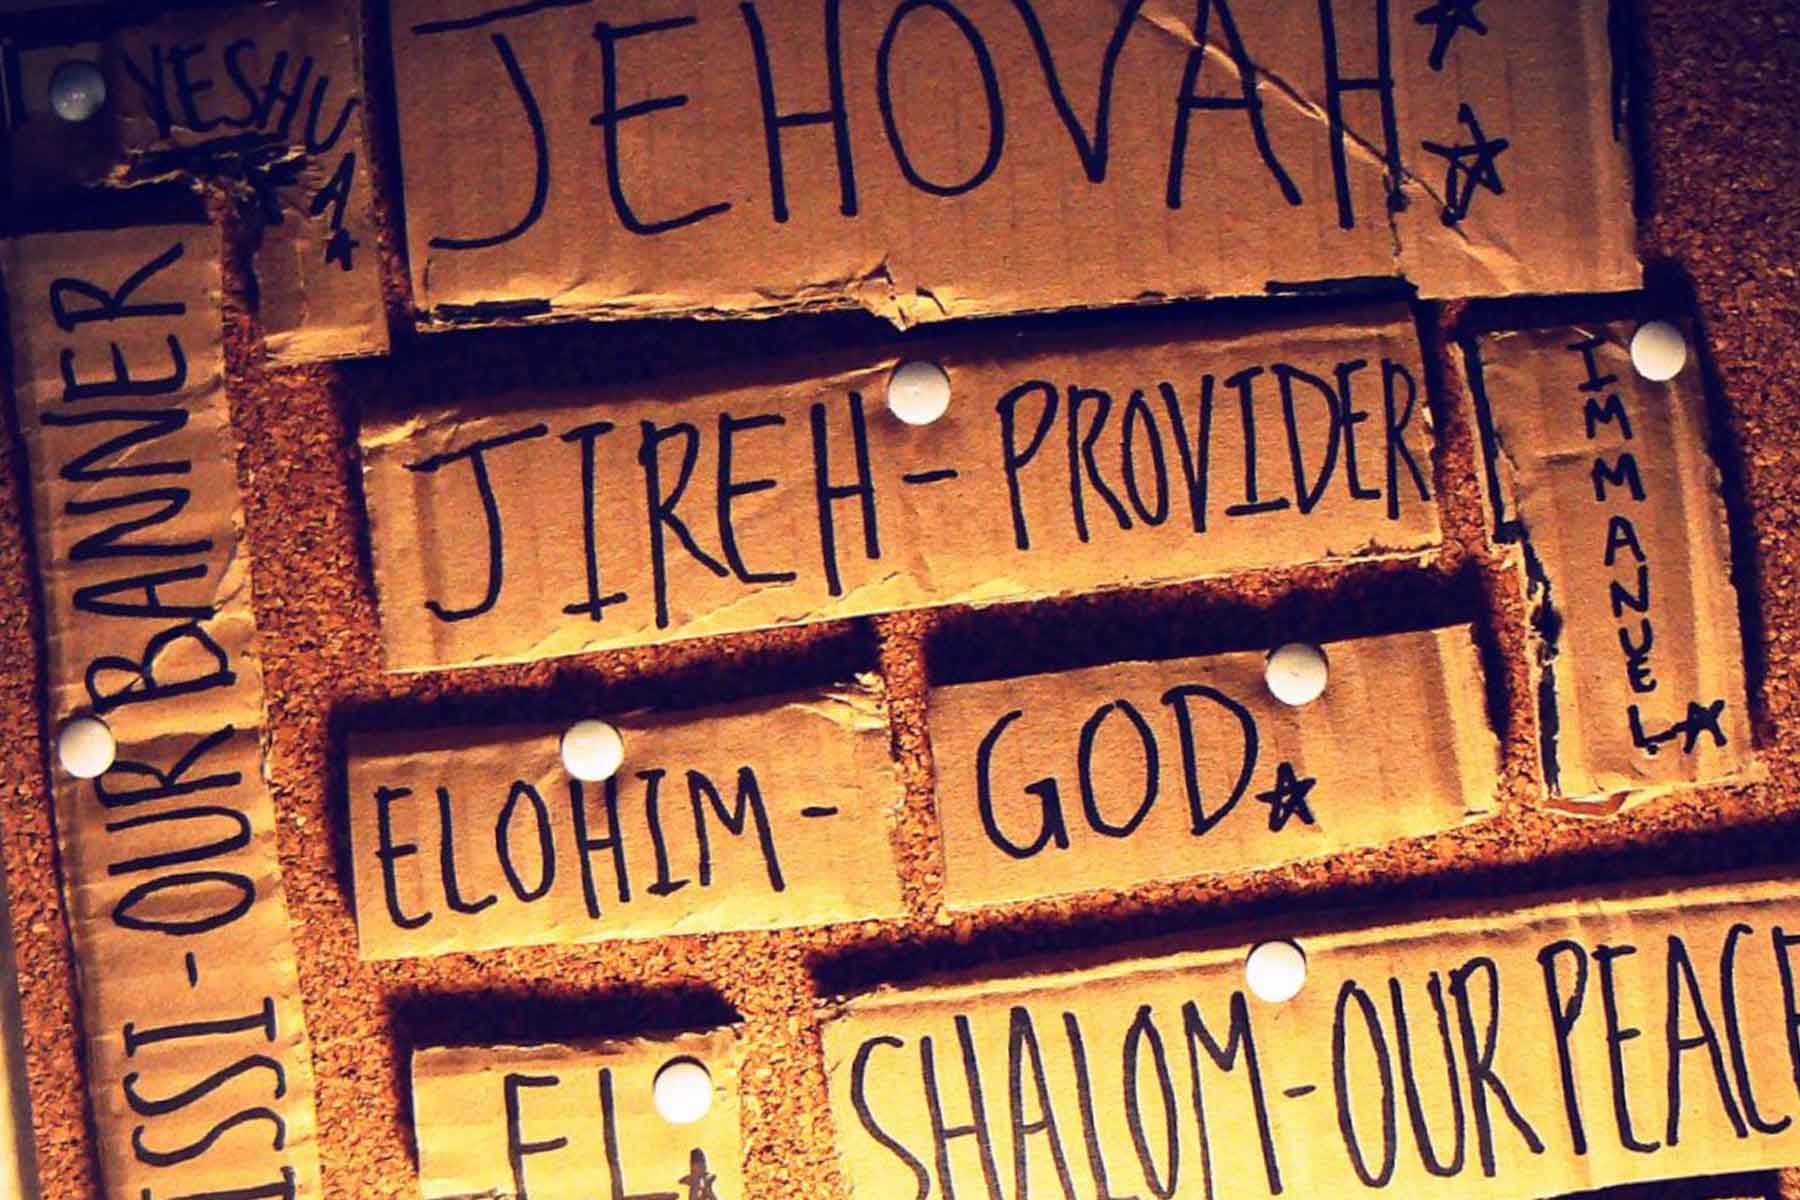 YESHUA
JEHOVAH
JIREH - PROVIDER
IMMANUEL
ELOHIM -
GOD
ISSI - OUR BANNER
EL
SHALOM - OUR PEACE